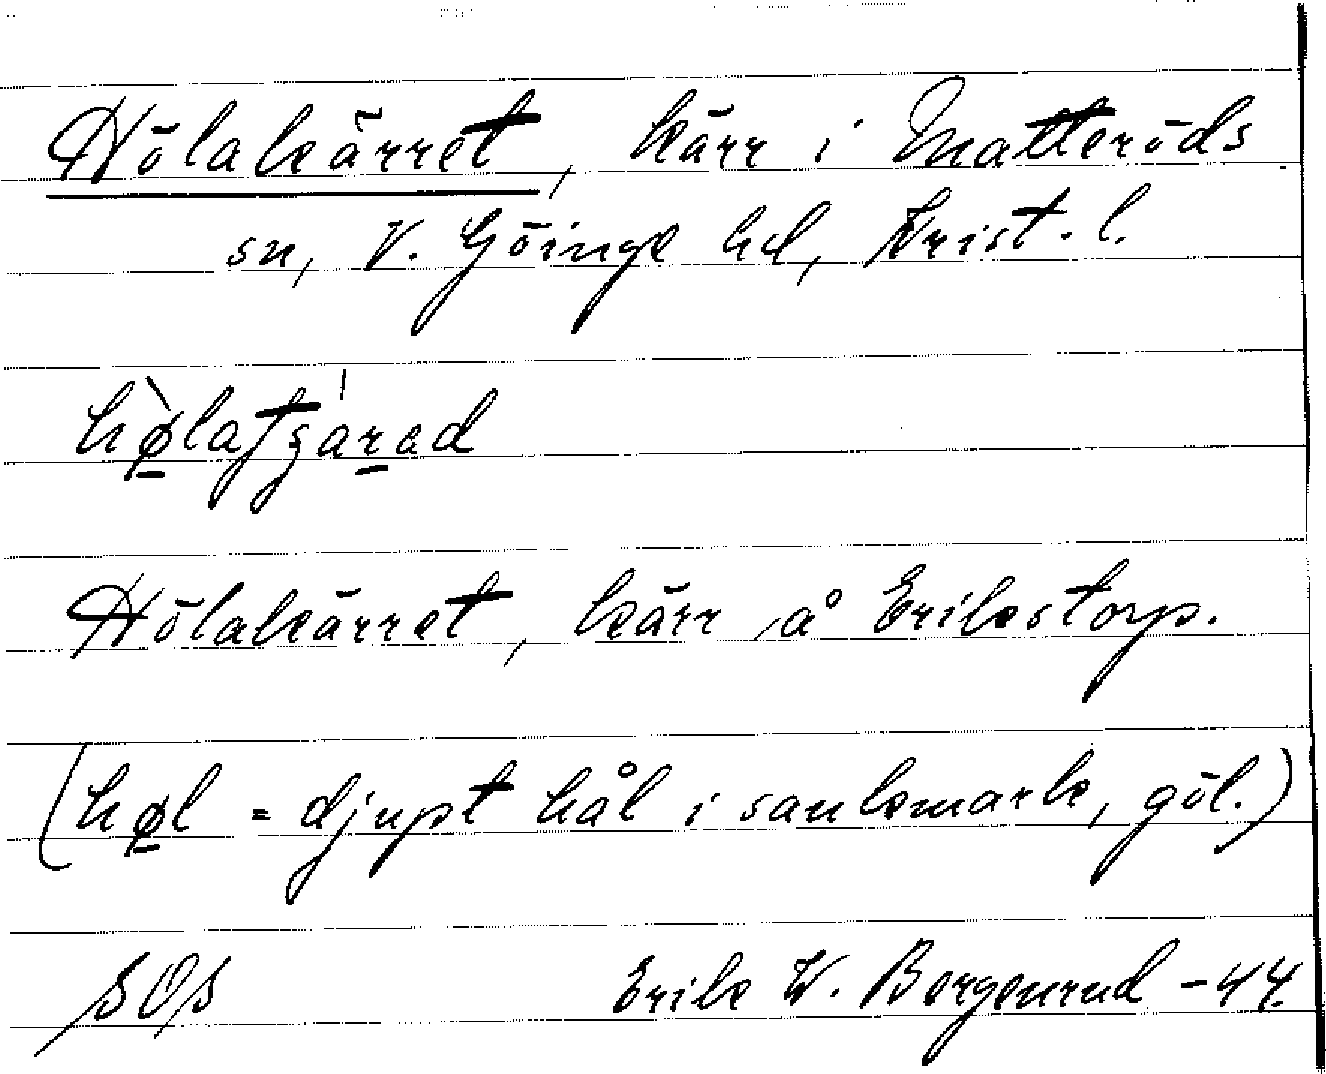 Hölakärret, kärr i Matteröds
sn, V. Göinge hd, Krist. l.
Hölakärret, kärr å Erikstorp.
(hø̱l = djupt hål i sankmark, göl.)
SOS Erik W. Bergenrud -44.